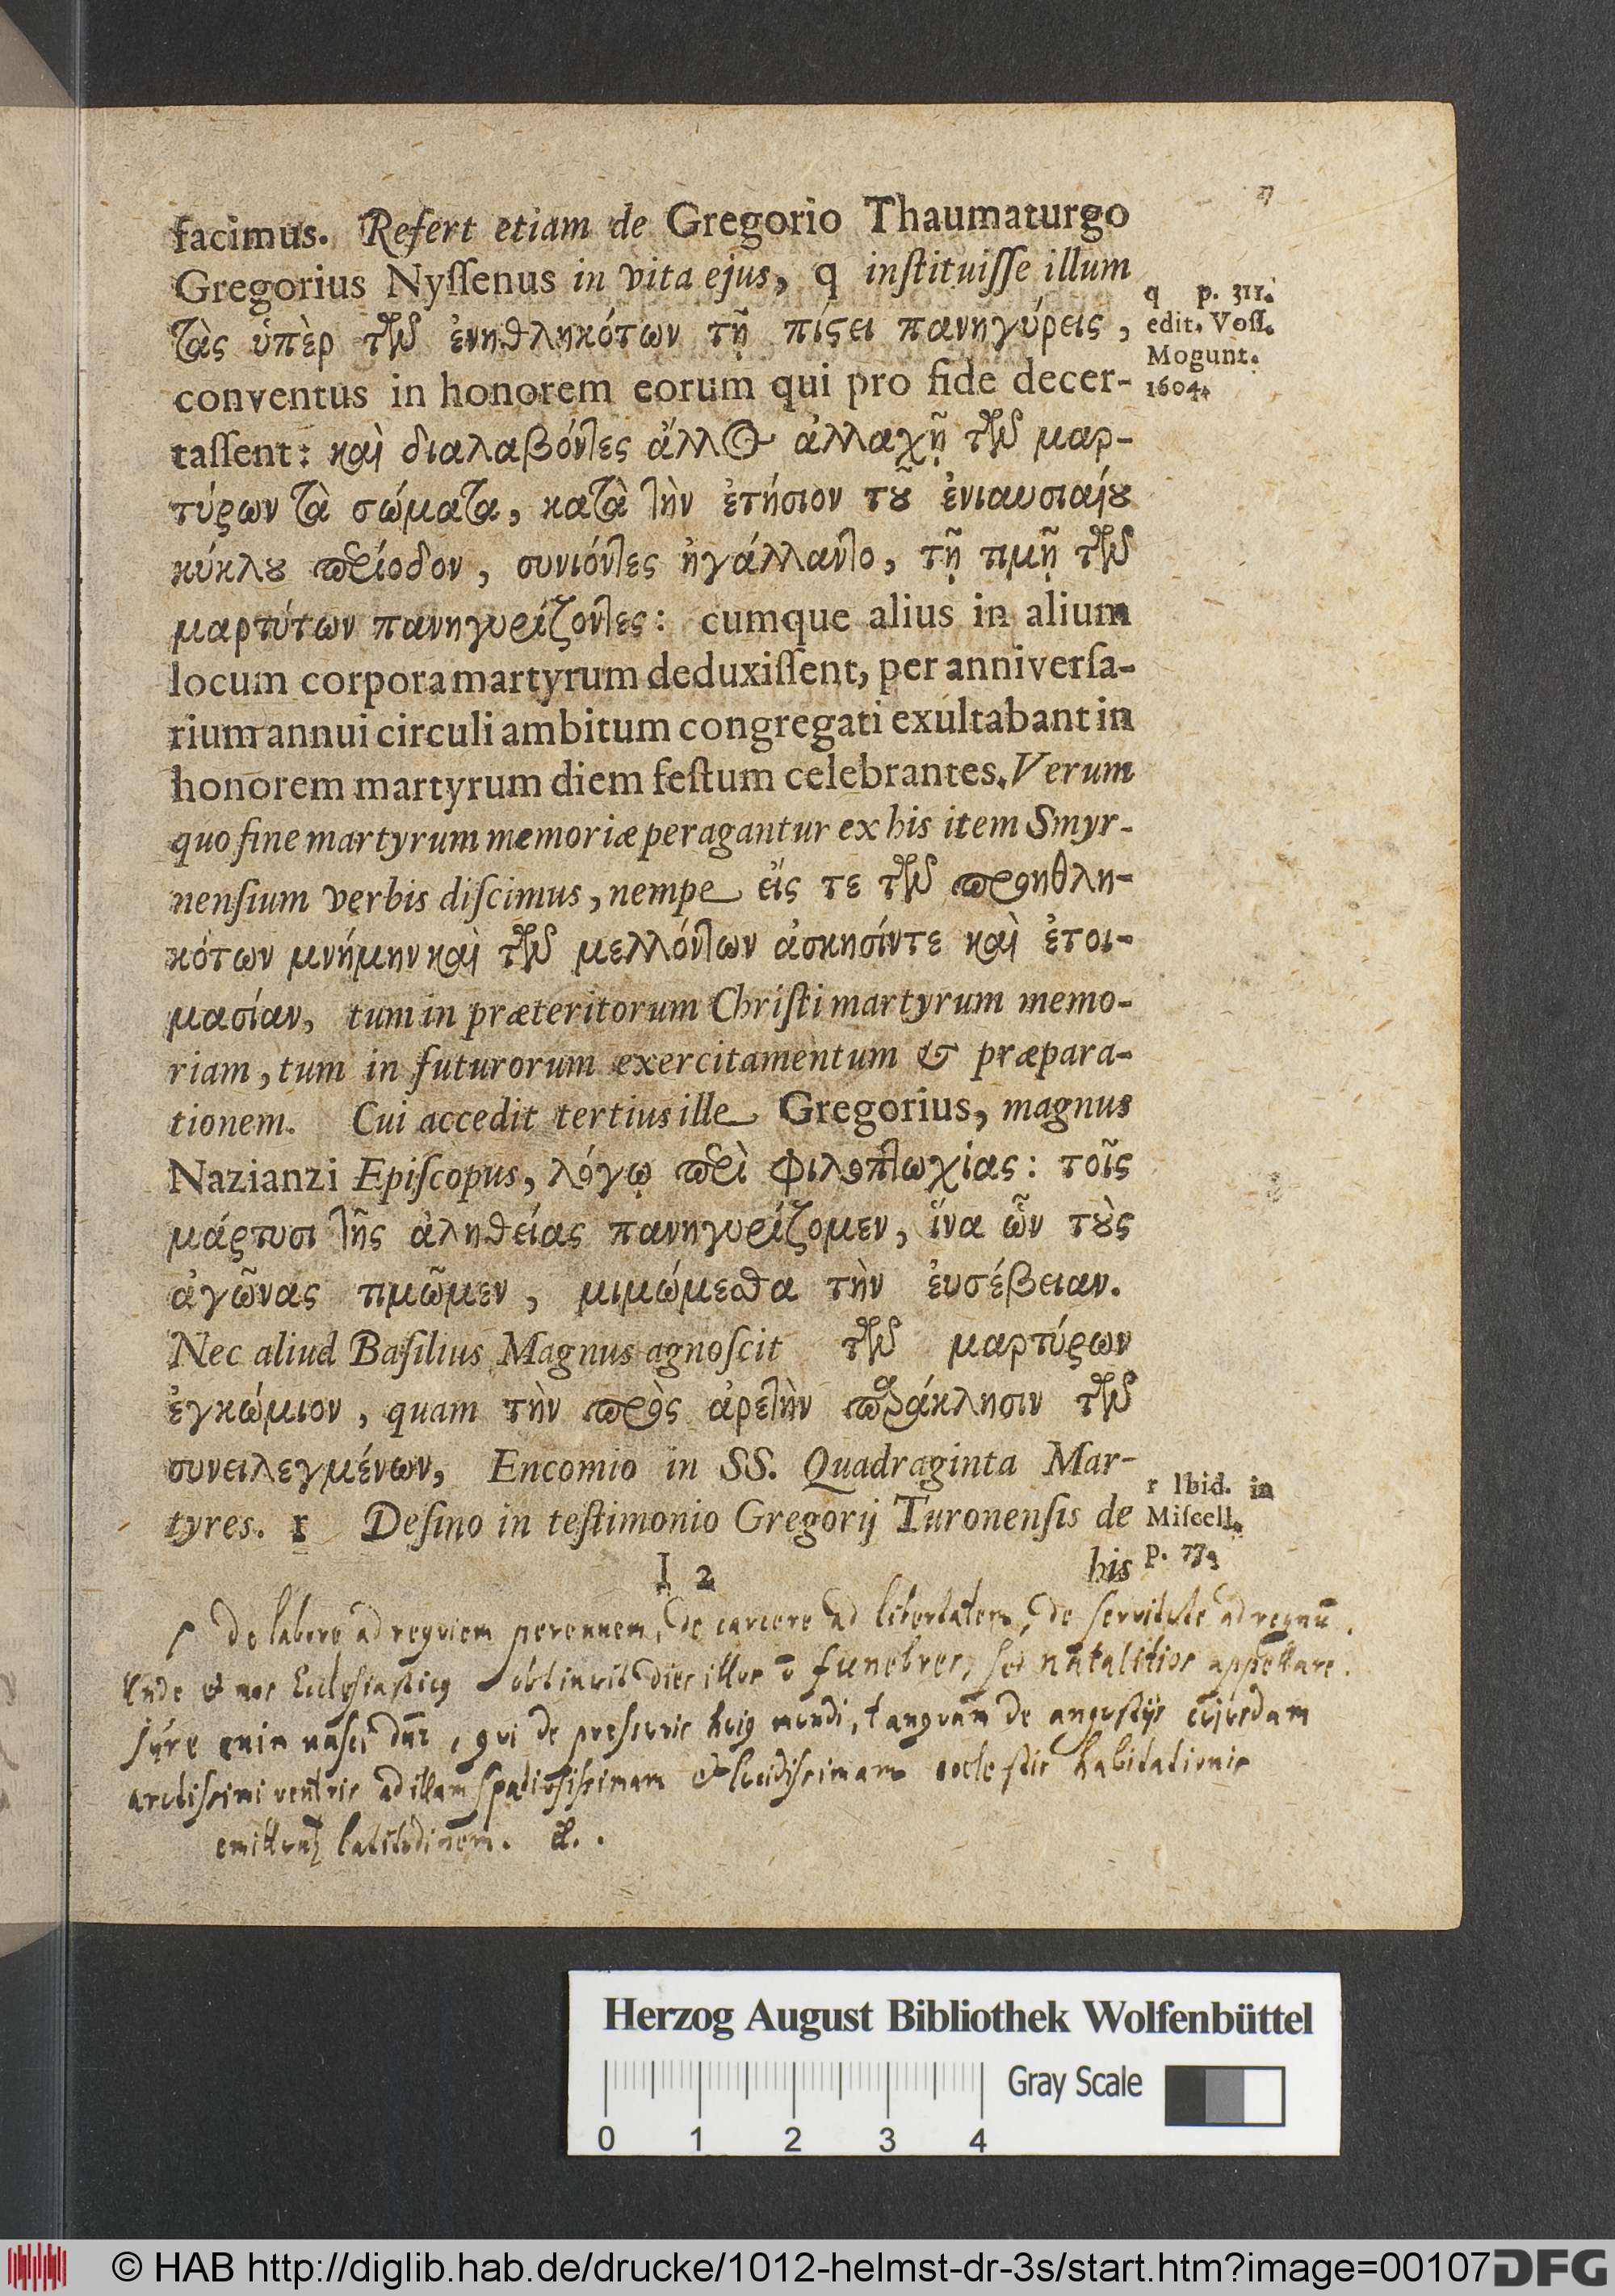 facimus. Refert etiam de Gregorio Thaumaturgo
Gregorius Nyſſenus in vita ejus, q inſtituiſſe illum
τὰς ὑπὲρ τῶν ἐνηθληκότων τῇ πίϛει πανηγύρεις,
conventus in honorem eorum qui pro fide decer-
taſſent: καὶ διαλαβόντες ἄλλος ἀλλαχῇ τῶν μαρ-
τύρων τὰ σώματα, κατὰ τὴν ἐτήσιον τȣ͂ ἐνιαυσιαίȣ
κύκλȣ περίοδον, συνιόντες ἠγάλλαντο, τῇ τιμῇ τῶν
μαρτύτων πανηγυρίζοντες: cumque alius in alium
locum corpora martyrum deduxiſſent, per anniverſa-
rium annui circuli ambitum congregati exultabant in
honorem martyrum diem feſtum celebrantes. Verum
quo fine martyrum memoriæ peragantur ex his item Smyr-
nenſium verbis diſcimus, nempe εἴς τε τῶν προηθλη-
κότων μνήμην καὶ τῶν μελλόντων ἀσκησίν τε καὶ ἑτοι-
μασίαν, tum in præteritorum Chriſti martyrum memo-
riam, tum in futurorum exercitamentum & præpara-
tionem. Cui accedit tertius ille Gregorius, magnus
Nazianzi Epiſcopus, λόγῳ περὶ φιλοπτωχίας: τοῖς
μάρτυσι τῆς ἀληθείας πανηγυρίζομεν, ἵνα ὧν τȣ̀ς
ἀγῶνας τιμῶμεν, μιμώμεθα τὴν ἐυσέβειαν.
Nec aliud Baſilius Magnus agnoſcit τῶν μαρτύρων
ἐγκώμιον, quam τὴν πρὸς ἀρετὴν παράκλησιν τῶν
συνειλεγμένων, Encomio in SS. Quadraginta Mar-
tyres. r Deſino in teſtimonio Gregorij Turonenſis de
I 2 his
q p. 311.
edit. Voſſ.
Mogunt.
1604.
r Ibid. in
Miſcell.
p. 77.
De labore ad requiem perennem, de carcere ad libertatem, de servitute ad regnū.
Unde et mos Ecclesiasticus obtinuit dies illos ō funebres, sed natalitios appellare.
Jure enim nasci dnr, qui de pressuris huius mundi, tanquam de angustijs cujusdam
arctissimi ventris ad illam spatiosissimam & lucidissimam coelestis habitationis
emittunt latitudinem.
Herzog August Bibliothek Wolfenbüttel
Gray Scale
0 1 2 3 4
© HAB http://diglib.hab.de/drucke/1012-helmst-dr-3s/start.htm?image=00107
DFG